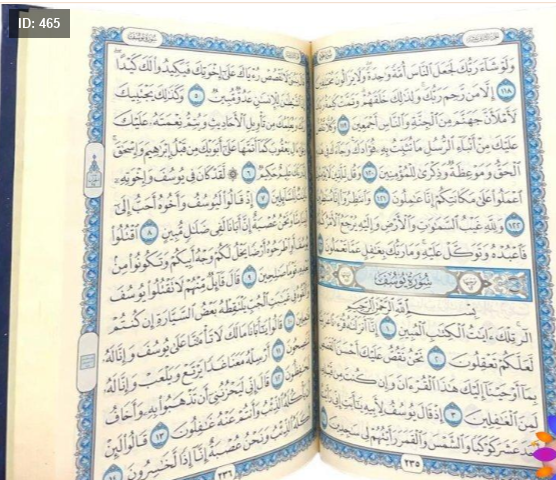 ID: 465
وَلَوْ شَآءَ رَبُّكَ لَجَعَلَ ٱلنَّاسَ أُمَّةً وَٰحِدَةً وَلَا يَزَالُونَ
١١٨ إِلَّا مَن رَّحِمَ رَبُّكَ وَلِذَٰلِكَ خَلَقَهُمْ وَتَمَّتْ
لَأَمْلَأَنَّ جَهَنَّمَ مِنَ ٱلْجِنَّةِ وَٱلنَّاسِ أَجْمَعِينَ ١١٩
عَلَيْكَ مِنْ أَنۢبَآءِ ٱلرُّسُلِ مَا نُثَبِّتُ بِهِۦ فُؤَادَكَ وَجَآءَكَ فِى
ٱلْحَقُّ وَمَوْعِظَةٌ وَذِكْرَىٰ لِلْمُؤْمِنِينَ ١٢٠ وَقُل لِّلَّذِينَ
ٱعْمَلُوا۟ عَلَىٰ مَكَانَتِكُمْ إِنَّا عَٰمِلُونَ ١٢١ وَٱنتَظِرُوٓا۟ إِنَّا
١٢٢ وَلِلَّهِ غَيْبُ ٱلسَّمَٰوَٰتِ وَٱلْأَرْضِ وَإِلَيْهِ يُرْجَعُ ٱلْأَمْرُ
فَٱعْبُدْهُ وَتَوَكَّلْ عَلَيْهِ وَمَا رَبُّكَ بِغَٰفِلٍ عَمَّا تَعْمَلُونَ
سُورَةُ يُوسُفَ
بِسْمِ ٱللَّهِ ٱلرَّحْمَٰنِ ٱلرَّحِيمِ
الٓر تِلْكَ ءَايَٰتُ ٱلْكِتَٰبِ ٱلْمُبِينِ ١ إِنَّآ أَنزَلْنَٰهُ قُرْءَٰنًا
لَّعَلَّكُمْ تَعْقِلُونَ ٢ نَحْنُ نَقُصُّ عَلَيْكَ أَحْسَنَ
بِمَآ أَوْحَيْنَآ إِلَيْكَ هَٰذَا ٱلْقُرْءَانَ وَإِن كُنتَ مِن
لَمِنَ ٱلْغَٰفِلِينَ ٣ إِذْ قَالَ يُوسُفُ لِأَبِيهِ يَٰٓأَبَتِ إِنِّى
أَحَدَ عَشَرَ كَوْكَبًا وَٱلشَّمْسَ وَٱلْقَمَرَ رَأَيْتُهُمْ لِى سَٰجِدِينَ
٢٣٥
لَا تَقْصُصْ رُءْيَاكَ عَلَىٰٓ إِخْوَتِكَ فَيَكِيدُوا۟ لَكَ كَيْدًا
ٱلشَّيْطَٰنَ لِلْإِنسَٰنِ عَدُوٌّ مُّبِينٌ ٥ وَكَذَٰلِكَ يَجْتَبِيكَ
وَيُعَلِّمُكَ مِن تَأْوِيلِ ٱلْأَحَادِيثِ وَيُتِمُّ نِعْمَتَهُۥ عَلَيْكَ
ءَالِ يَعْقُوبَ كَمَآ أَتَمَّهَا عَلَىٰٓ أَبَوَيْكَ مِن قَبْلُ إِبْرَٰهِيمَ وَإِسْحَٰقَ
عَلِيمٌ حَكِيمٌ ٦ ۞ لَّقَدْ كَانَ فِى يُوسُفَ وَإِخْوَتِهِۦٓ
لِّلسَّآئِلِينَ ٧ إِذْ قَالُوا۟ لَيُوسُفُ وَأَخُوهُ أَحَبُّ إِلَىٰٓ
وَنَحْنُ عُصْبَةٌ إِنَّ أَبَانَا لَفِى ضَلَٰلٍ مُّبِينٍ ٨ ٱقْتُلُوا۟
يُوسُفَ أَوِ ٱطْرَحُوهُ أَرْضًا يَخْلُ لَكُمْ وَجْهُ أَبِيكُمْ وَتَكُونُوا۟ مِنۢ
قَوْمًا صَٰلِحِينَ ٩ قَالَ قَآئِلٌ مِّنْهُمْ لَا تَقْتُلُوا۟ يُوسُفَ
فِى غَيَٰبَتِ ٱلْجُبِّ يَلْتَقِطْهُ بَعْضُ ٱلسَّيَّارَةِ إِن كُنتُمْ
١٠ قَالُوا۟ يَٰٓأَبَانَا مَا لَكَ لَا تَأْمَ۫نَّا عَلَىٰ يُوسُفَ وَإِنَّا لَهُۥ
١١ أَرْسِلْهُ مَعَنَا غَدًا يَرْتَعْ وَيَلْعَبْ وَإِنَّا لَهُۥ
١٢ قَالَ إِنِّى لَيَحْزُنُنِىٓ أَن تَذْهَبُوا۟ بِهِۦ وَأَخَافُ
أَن يَأْكُلَهُ ٱلذِّئْبُ وَأَنتُمْ عَنْهُ غَٰفِلُونَ ١٣ قَالُوا۟ لَئِنْ
أَكَلَهُ ٱلذِّئْبُ وَنَحْنُ عُصْبَةٌ إِنَّآ إِذًا لَّخَٰسِرُونَ ١٤
٢٣٦